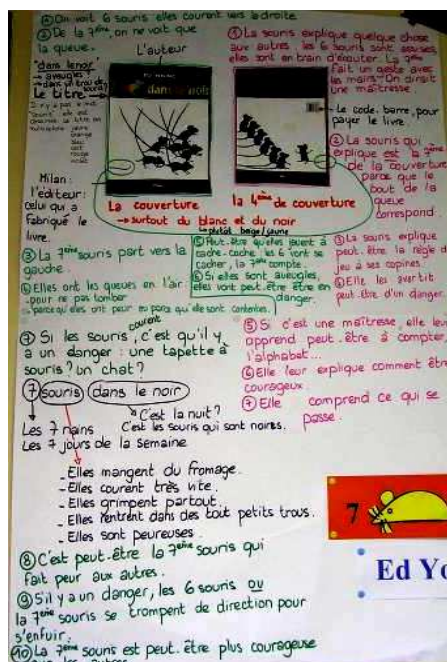 ① On voit 6 souris elles courent vers la droite.
② De la 7ème, on ne voit que
la queue.
L'auteur
"dans le noir"
→ aveugles?
→ dans un trou de souris?
Le titre
Il n'y a pas le mot
"souris", elle est
dessinée. Le titre en
multicolore jaune
orange
bleu
vert
rouge
violet
dans le noir
Milan:
l'éditeur:
celui qui a
fabriqué le
livre.
La couverture
la 4ème de couverture
→ surtout du blanc et du noir
→ plutôt beige/jaune
① La souris explique quelque chose
aux autres. les 6 souris sont assises,
elles sont en train d'écouter. La 7ème
fait un geste avec
les mains. On dirait
une maîtresse.
Le code barre, pour
payer le livre.
② La souris qui
explique est la 7ème
de la couverture
parce que le
bout de la
queue
correspond.
③ La 7ème souris part vers la
gauche.
④ Elles ont les queues en l'air
pour ne pas tomber
parce qu'elles ont peur ou parce qu'elle sont contentes.
⑤ Peut-être qu'elles jouent à
cache-cache: les 6 vont se
cacher, la 7ème compte.
⑥ Si elles sont aveugles,
elles vont peut être être en
danger.
③ La souris explique
peut être la règle du
jeu à ses copines.
④ Elle les avertit
peut être d'un danger.
⑦ Si les souris courent, c'est qu'il y
a un danger: une tapette à
souris? Un chat?
⑤ Si c'est une maîtresse, elle leur
apprend peut-être à compter,
l'alphabet...
⑥ Elle leur explique comment être
courageux.
⑦ Elle comprend ce qui se
passe.
7 souris dans le noir
C'est la nuit?
C'est les souris qui sont noires.
Les 7 nains
Les 7 jours de la semaine
- Elles mangent du fromage.
- Elles courent très vite.
- Elles grimpent partout.
- Elles rentrent dans des tout petits trous.
- Elles sont peureuses.
⑧ C'est peut-être la 7ème souris qui
fait peur aux autres.
⑨ S'il y a un danger, les 6 souris ou
la 7ème souris se trompent de direction pour
s'enfuir.
⑩ La 7ème souris est peut-être plus courageuse
que les autres
7
Ed Yo